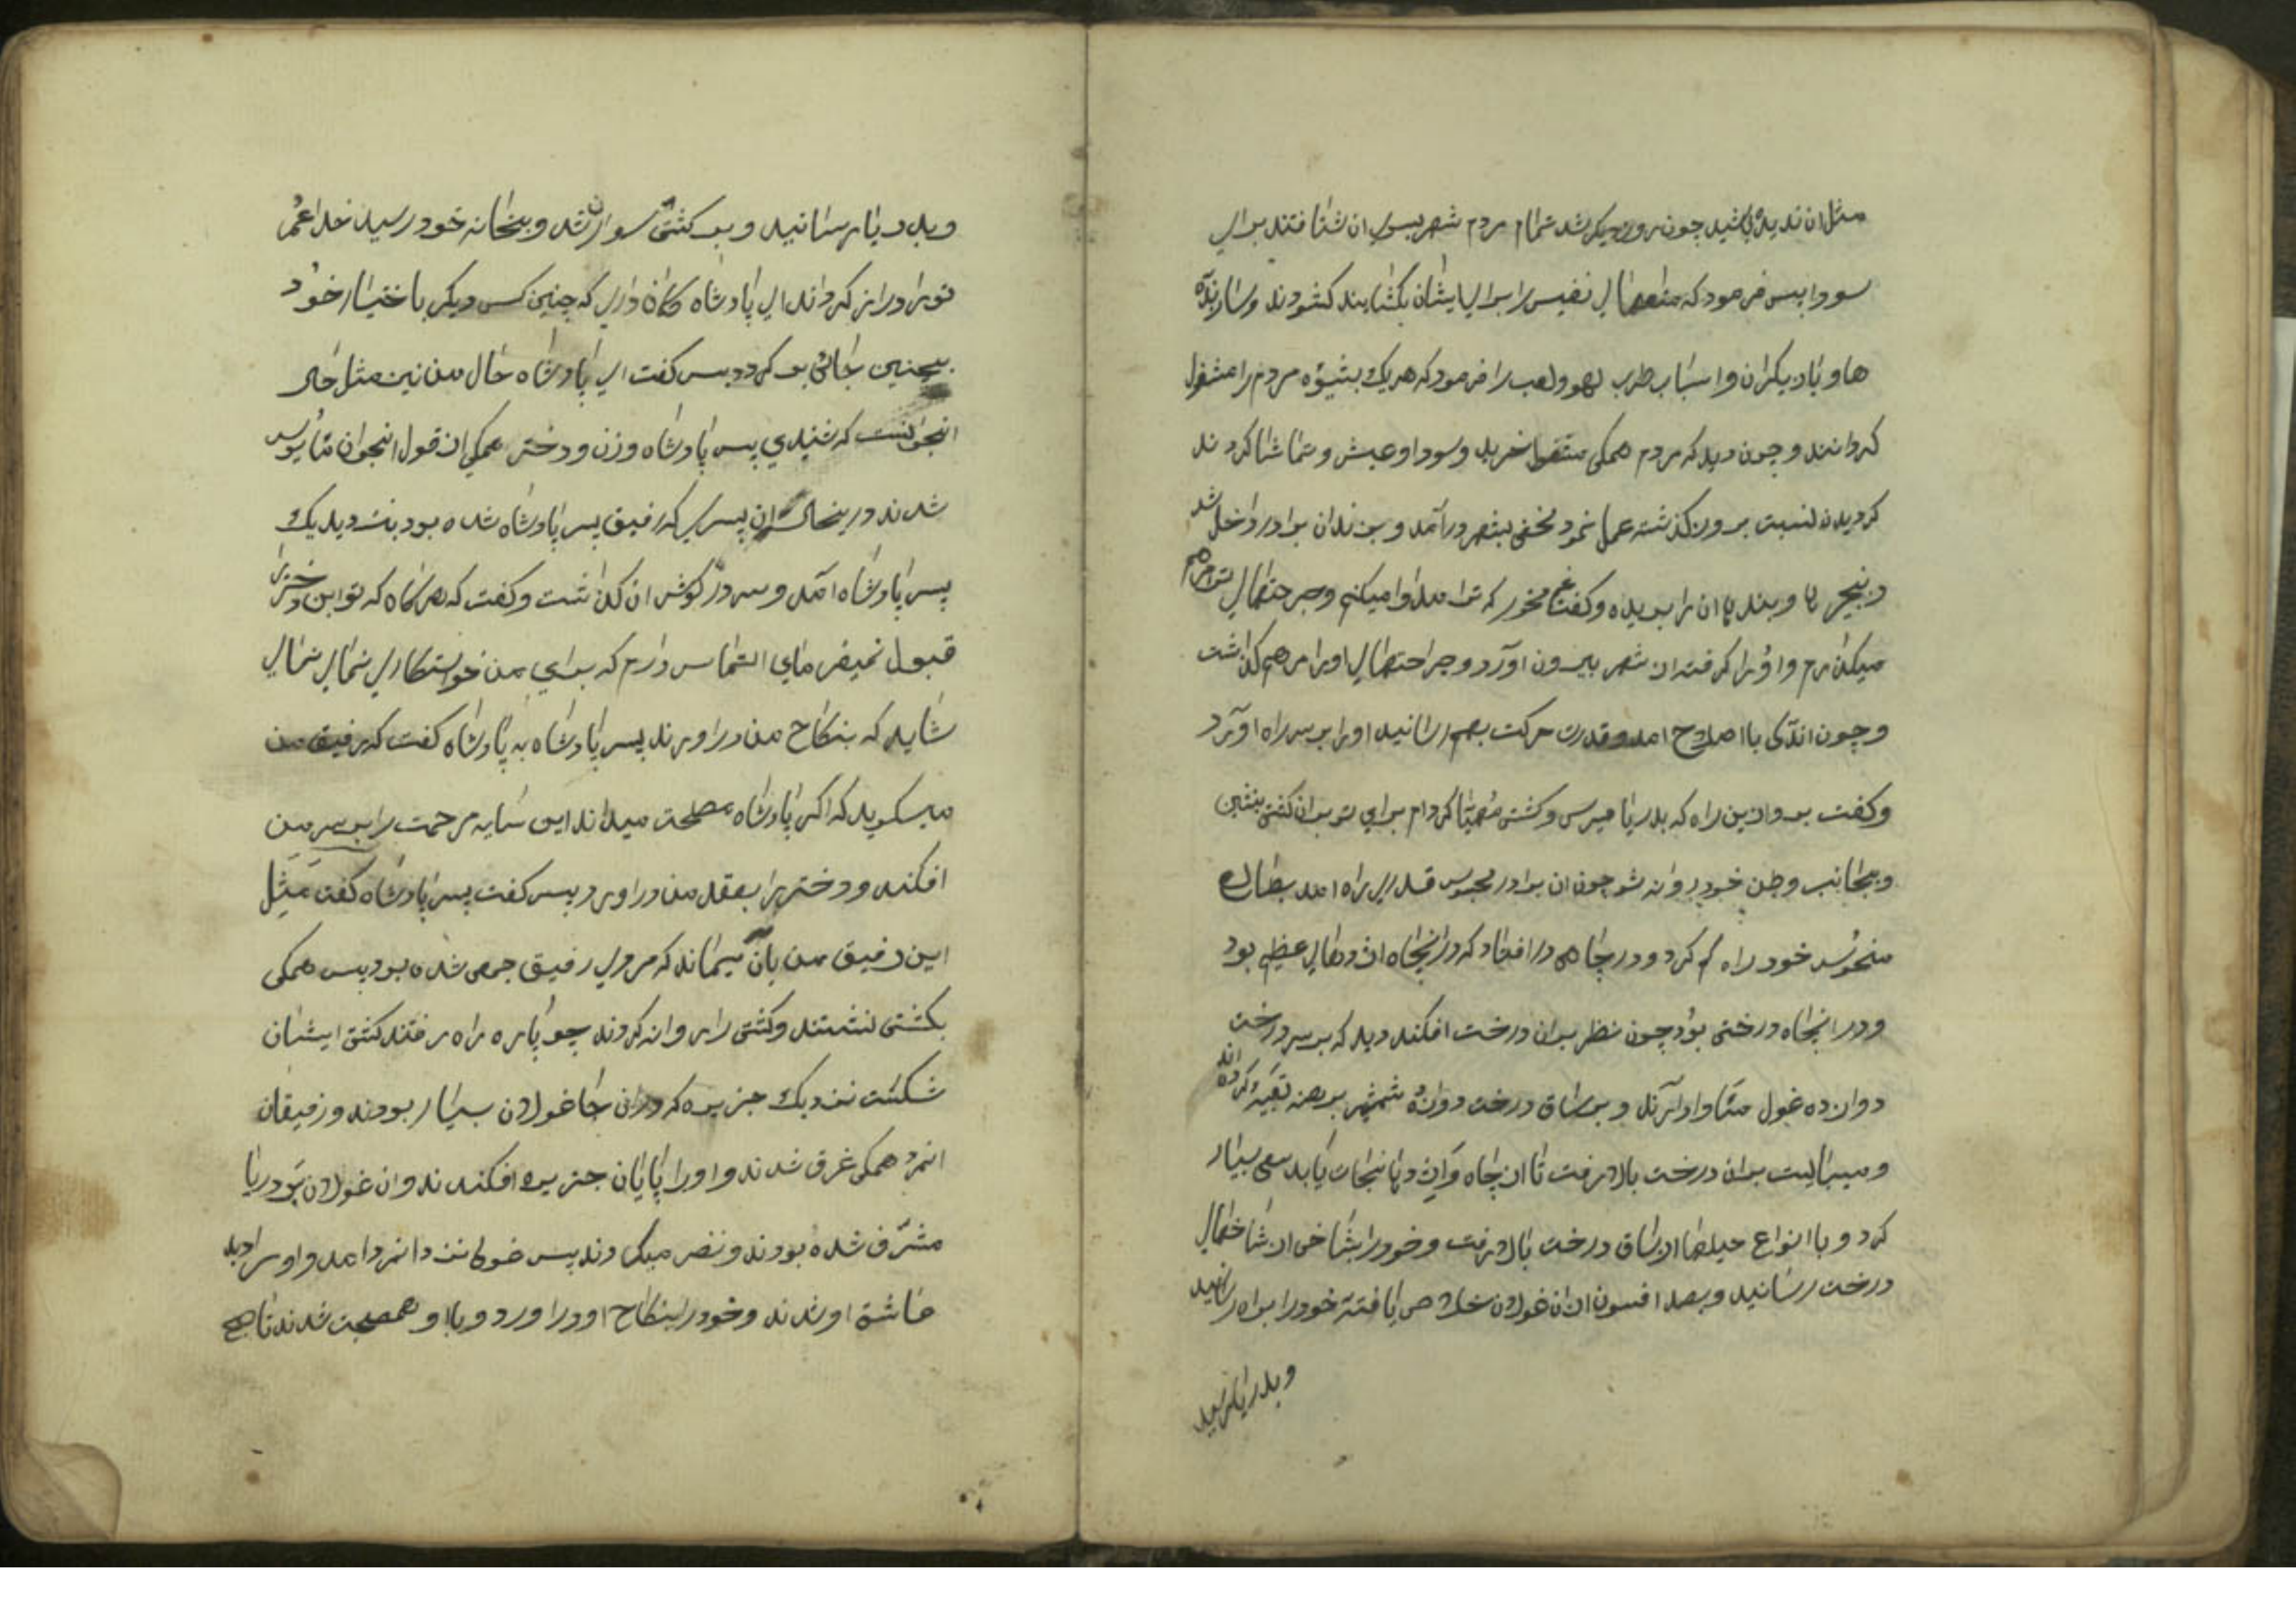 مثل ان ندیده باشید چون روز دیگر شد تمام مردم شهر بسوی ان شتافتند برای
سودا پس فرمود که متعهای نفیس را برای ایشان بکشایند کشودند و سازنده
ها و بازیکران و اسباب طرب لهو ولعب را فرمود که هر یک بشیوه مردم را مشغول
کردانند و چون دید که مردم همکی مشغول خرید وسودا وعیش و تماشا کردند
کردیدن لنسبت بروز کذشته عمل نمود مخفی بشهر درآمد و بزندان برادر داخل شد
زنجیر ها و بند ها ان را بریده و کفت غم مخور که ترا مداوا میکنم و جراحتهای تو مرهم
میکذارم واورا کرفته از شهر بیرون اورد و جراحتهای اورا مرهم کذاشت
و چون اندکی باصلاح امد و قدرت حرکت بهم رسانید اورا بر سر راه اورد
وکفت برو ازین راه که بدریا میرسی و کشتی مهیا کرده ام برای تو بران کشتی بنشین
و بجانب وطن خود روانه شو چون ان برادر محبوس قدری راه امد بطالع
منحوس خود راه کم کرد و در چاهی در افتاد که در انچاه اژدهای عظیم بود
و در انچاه درختی بود چون نظر بران درخت افکند دید که بر سر درخت
دوازده غول ماوا دارند و بر ساق درخت دوازده شمشیر برهنه تعبیه کرده اند
و میبایست بران درخت بالا رفت تا از چاه و اژدها نجات یابد سعی بسیار
کرد و باانواع حیلها از ساق درخت بالا رفت و خود را بشاخی از شاخهای
درخت رسانید و بصد افسون از ان غولان خلاص یافته خود را براه رسانید
و بدریا رسید
و بدریا رسانید و بر کشتی سوار شد و بخانه خود رسید خدا عمر
تورا دراز کرداند ای پادشاه کمان داری که چنین کس دیکر باختیار خود
بچنین جائی بر کردد پس کفت ای پادشاه حال من نیز مثل حال
انجوانست که شنیدی پس پادشاه وزن و دختر همکی از قول انجوان مایوس
شدند درینحال ان پسری که رفیق پسر پادشاه شده بود بنزدیک
پسر پادشاه آمد و سر در کوش ان کذاشت و کفت که هرکاه که تو این دختر را
قبول نمیفرمای التماس دارم که برای من خواستکاری نمای
شاید که بنکاح من در اورند پسر پادشاه به پادشاه کفت که رفیق من
میکوید که اکر پادشاه مصلحت میداند این سایه مرحمت را بر سر من
افکند و دختر را بعقد من در اورد پس کفت پسر پادشاه کفت مثل
این رفیق من بان میماند که مردی رفیق جمعی شده بود پس همکی
بکشتی نشستند و کشتی را روانه کردند چو پاره راه رفتند کشتی ایشان
شکست نزدیک جزیره که در ان جا غولان بسیار بودند و رفیقان
انمرد همکی غرق شدند و اورا پایان جزیره افکندند و ان غولان بر دریا
مشرف شده بودند و نظر میکردند پس غولی نزد انمرد امد و او را دید
عاشق او شدند و خود را بنکاح او در اورد و باو همصحبت شدند تا صبح